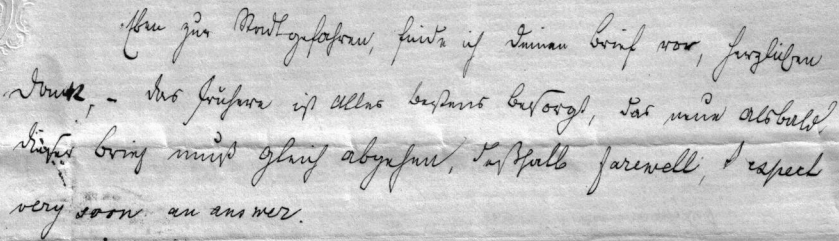 Eben zur Stadt gefahren, finde ich Deinen Brief vor, herzlichen
Dank, - das frühere ist alles bestens besorgt, das neue alsbald.
dieser Brief muß gleich abgehen, deßhalb farewell, I expect
very soon an answer.